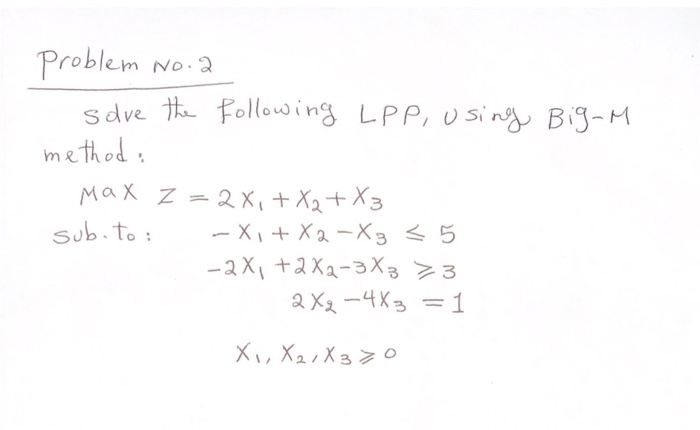 Problem No.2
Solve the following LPP, Using Big-M
method:
Max Z = 2X₁ + X₂ + X₃
Sub. to: - X₁ + X₂ - X₃ ⩽ 5
-2X₁ + 2X₂ - 3X₃ ⩾ 3
2X₂ - 4X₃ = 1
X₁, X₂, X₃ ⩾ 0